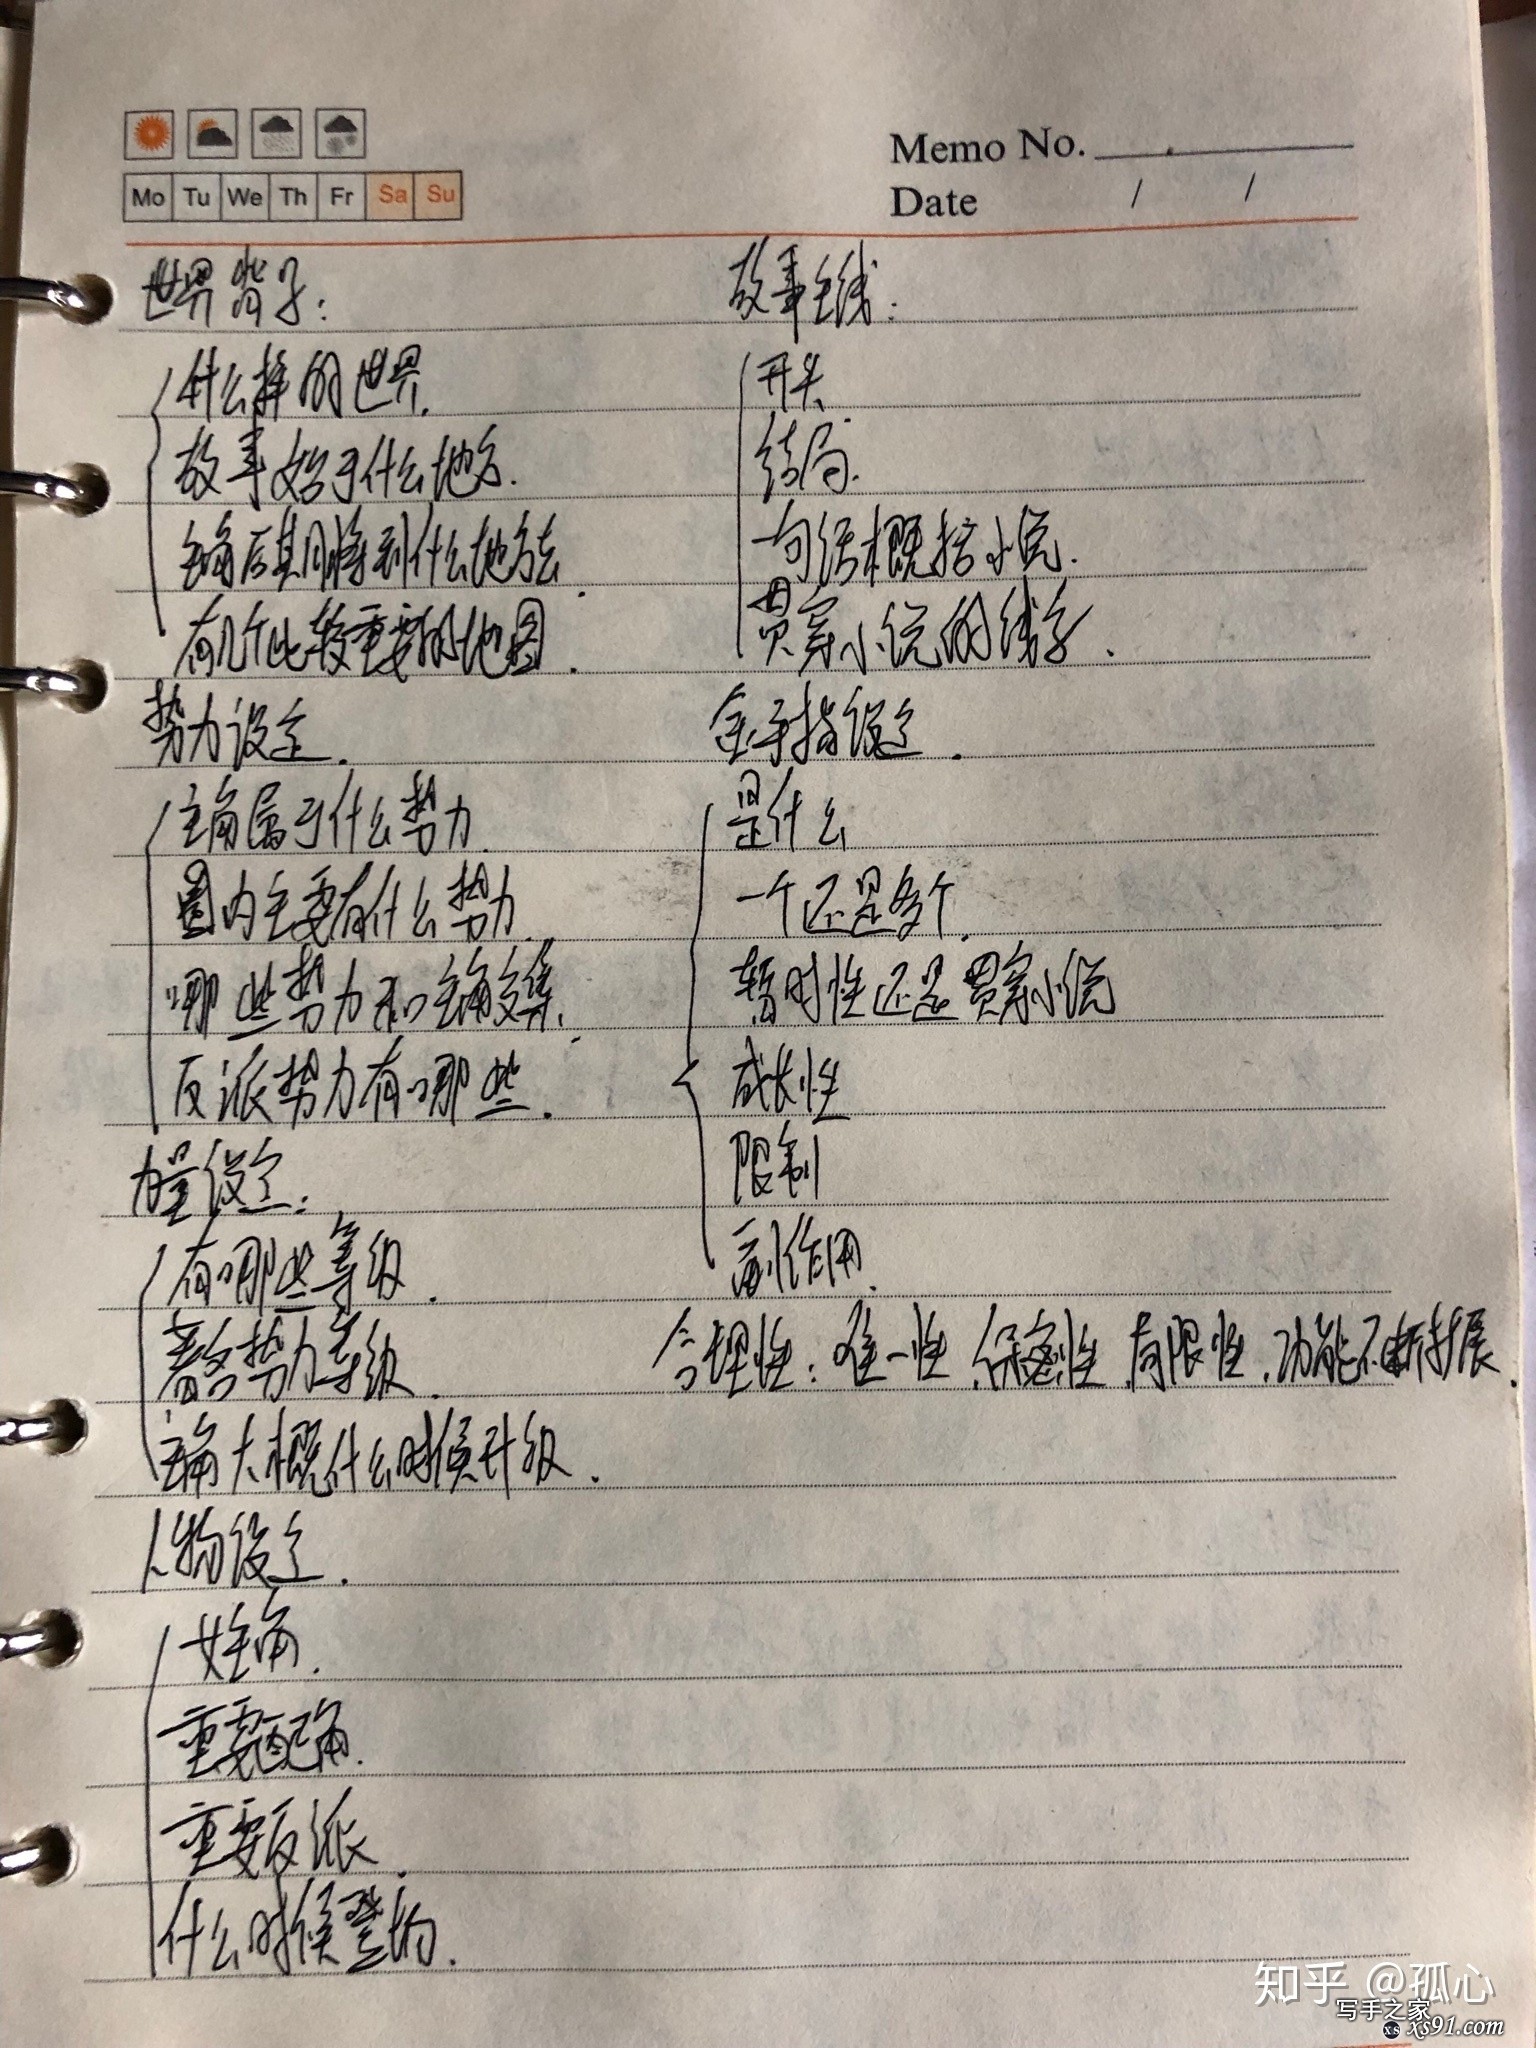 Memo No.
Mo Tu We Th Fr Sa Su
Date / /
世界背景:
什么样的世界.
故事始于什么地方.
主角后期将到什么地方去.
有几个比较重要的地图.
势力设定.
主角属于什么势力.
圈内主要有什么势力.
哪些势力和主角交集.
反派势力有哪些.
力量设定:
有哪些等级.
势力等级.
主角大概什么时候升级.
人物设定.
女主角.
重要配角.
重要反派.
什么时候登场.
故事主线:
开头.
结局.
一句话概括小说.
贯穿小说的线索.
金手指设定.
是什么
一个还是多个.
暂时性还是贯穿小说
成长性
限制
副作用.
合理性:唯一性.保密性.有限性.功能不断扩展.
知乎 @孤心
写手之家
xs xs91.com